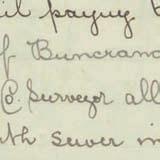 il paying
of Buncrana
Co. Surveyor all
th sewer in